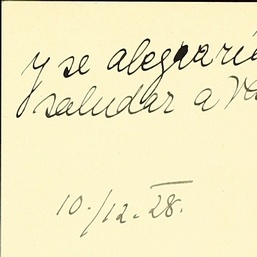 y se alegrarí
saludar a
10./12.28.